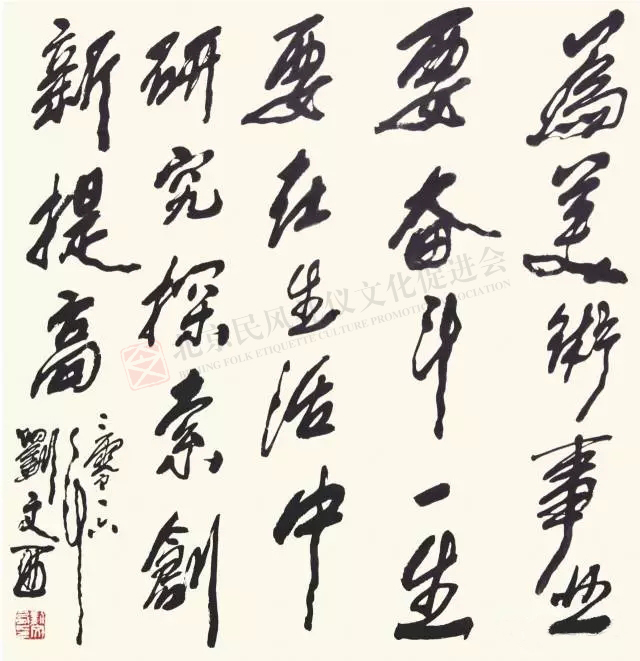 為美術事业
要奋斗一生
要在生活中
研究探索創
新提高
二零一六
劉文西
北京民风 仪文化促进会
BEIJING FOLK ETIQUETTE CULTURE PROMOTION ASSOCIATION